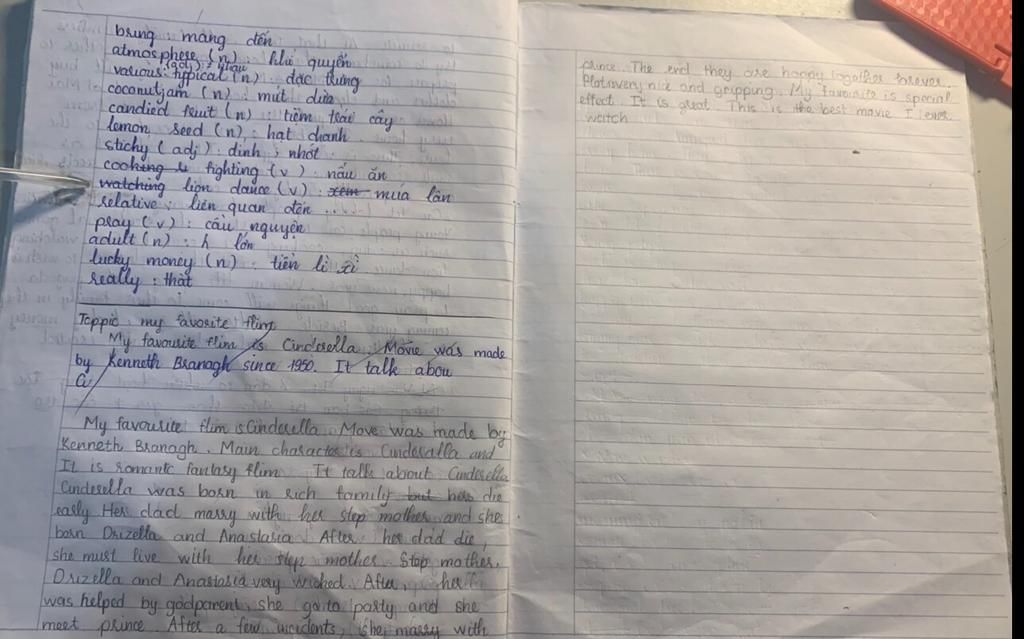 bring : mang đến
atmosphere (n) : khí quyển
(adj) : nhau
various: typical (n) : đặc trưng
coconutjam (n) : mứt dừa
candied fruit (n) : tiệm trái cây
lemon seed (n) : hạt chanh
stichy (adj) : dính ; nhớt
cooking fighting (v) : nấu ăn
watching lion dance (v) : xem múa lân
relative : liên quan đến ...
pray (v) : cầu nguyện
adult (n) : h lớn
lucky money (n) : tiền lì xì
really : thật
Toppic : my favorite flim
My favourite flim is Cinderella. Movie was made
by Kenneth Branagh since 1950. It talk abou
a
My favourite flim is Cinderella. Move was made by
Kenneth Branagh. Main character is Cinderalla and
It is romantic fantasy flim. It talk about Cinderella
Cinderella was born in rich family but her die
early Her dad marry with her step mother and she
born Drizella and Anastasia. After her dad die,
she must live with her step mother. Step mother,
Drizella and Anastasia very wicked. After, her
was helped by godparent, she go to party and she
meet prince. After a few incidents, she marry with
prince. The end they are happy together forever.
Plot is very nice and gripping. My favorite is special
effect. It is great. This is the best movie I ever
watch